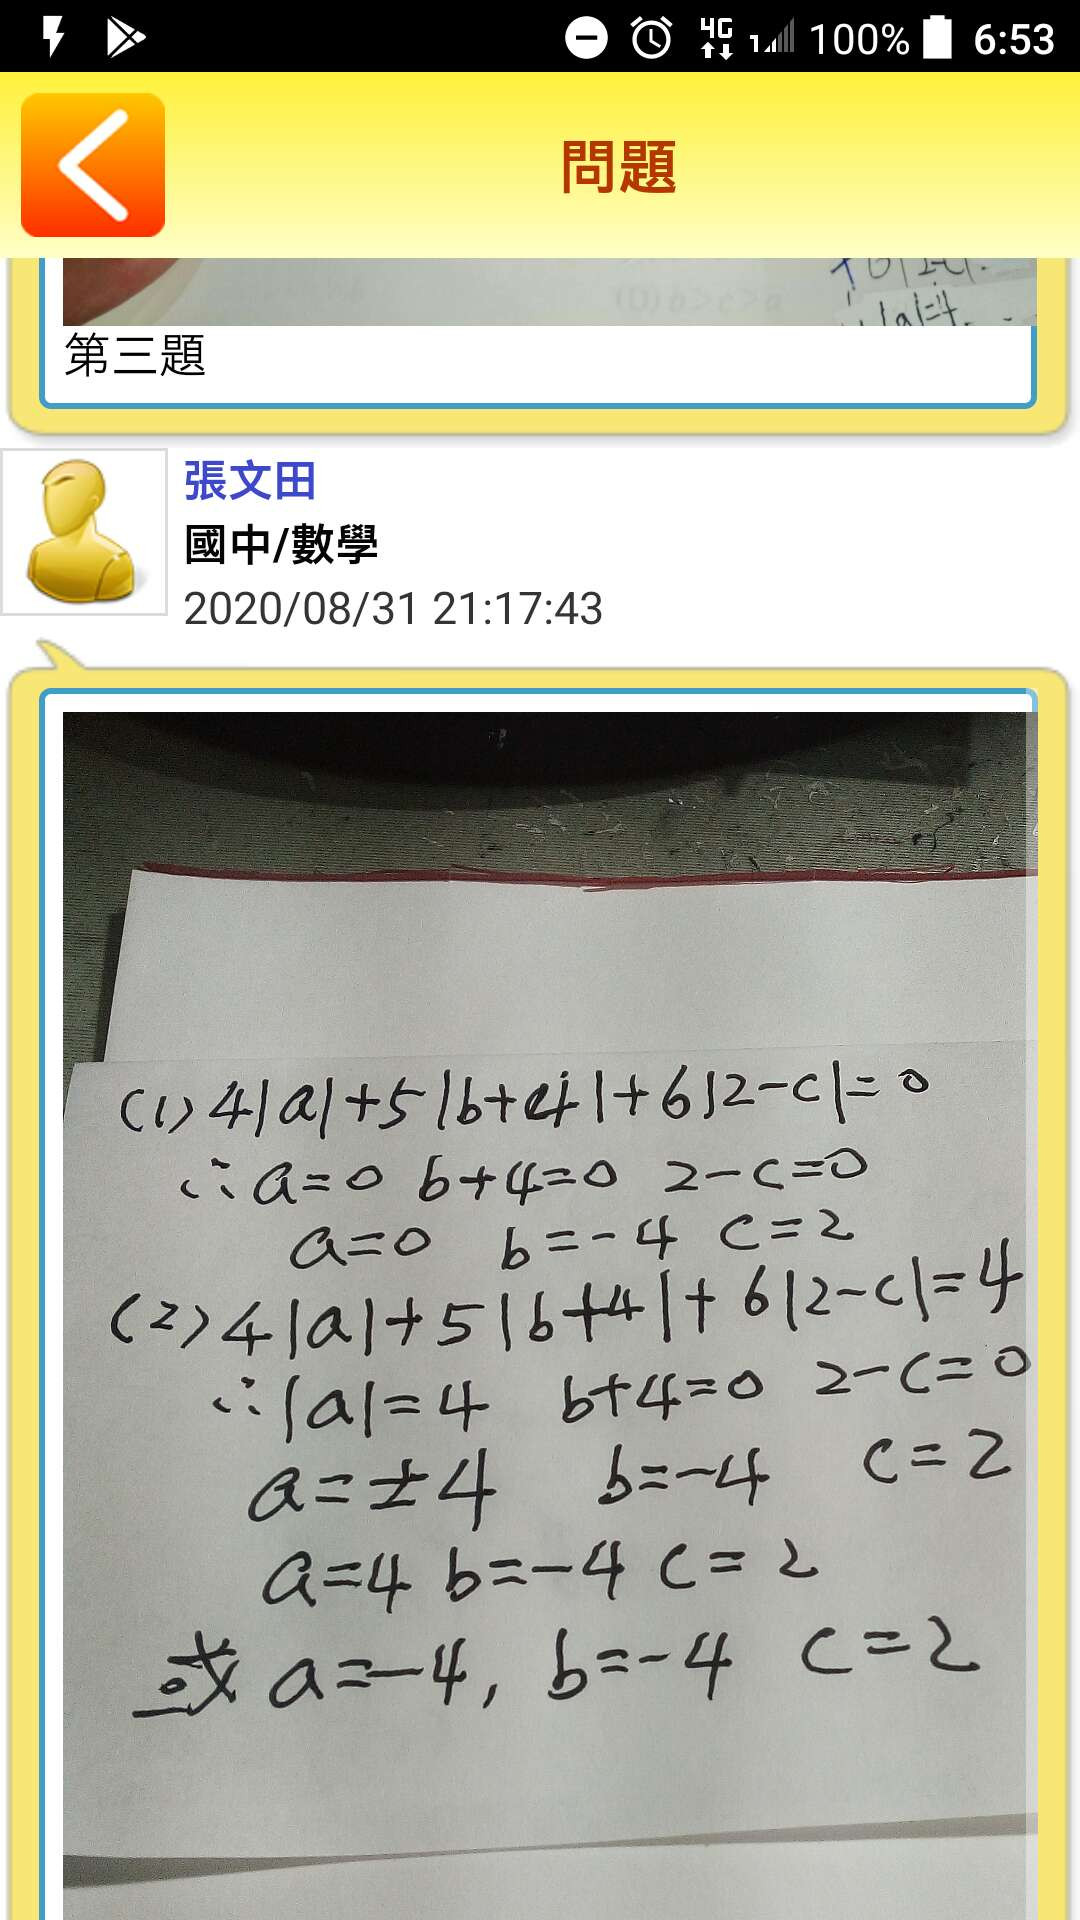 4G 1 100% 6:53
問題
|a|=4
第三題
張文田
國中/數學
2020/08/31 21:17:43
(1) 4|a|+5|b+4|+6|2-c|=0
∴a=0 b+4=0 2-c=0
a=0 b=-4 c=2
(2) 4|a|+5|b+4|+6|2-c|=4
∴|a|=4 b+4=0 2-c=0
a=±4 b=-4 c=2
a=4 b=-4 c=2
或 a=-4, b=-4 c=2